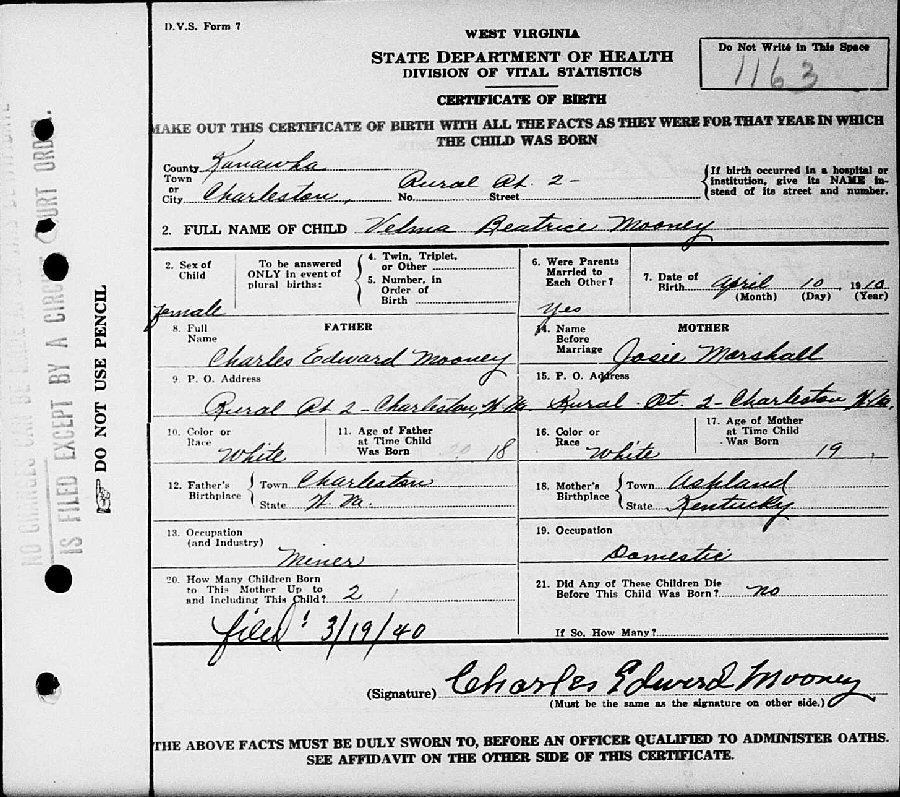 D.V.S. Form 7
WEST VIRGINIA
STATE DEPARTMENT OF HEALTH
DIVISION OF VITAL STATISTICS
CERTIFICATE OF BIRTH
Do Not Write in This Space
1163
MAKE OUT THIS CERTIFICATE OF BIRTH WITH ALL THE FACTS AS THEY WERE FOR THAT YEAR IN WHICH
THE CHILD WAS BORN
County Kanawha
Town or City Charleston, No. Rural Rt. 2- Street
{If birth occurred in a hospital or
institution, give its NAME in-
stead of its street and number.
2. FULL NAME OF CHILD Velma Beatrice Mooney
2. Sex of Child female
To be answered
ONLY in event of
plural births:
4. Twin, Triplet,
or Other
5. Number, in
Order of
Birth
6. Were Parents
Married to
Each Other?
Yes
7. Date of
Birth April 10, 1910
(Month) (Day) (Year)
8. Full Name FATHER
Charles Edward Mooney
14. Name Before Marriage MOTHER
Josie Marshall
9. P. O. Address
Rural Rt 2 - Charleston, W Va
15. P. O. Address
Rural Rt. 2 - Charleston W.Va.
10. Color or
Race White
11. Age of Father
at Time Child
Was Born 18
16. Color or
Race White
17. Age of Mother
at Time Child
Was Born 19
12. Father's
Birthplace
Town Charleston
State W Va.
18. Mother's
Birthplace
Town Ashland
State Kentucky
13. Occupation
(and Industry)
Miner
19. Occupation
Domestic
20. How Many Children Born
to This Mother Up to
and Including This Child? 2
21. Did Any of These Children Die
Before This Child Was Born? no
filed: 3/19/40
If So, How Many?
(Signature) Charles Edward Mooney
(Must be the same as the signature on other side.)
THE ABOVE FACTS MUST BE DULY SWORN TO, BEFORE AN OFFICER QUALIFIED TO ADMINISTER OATHS.
SEE AFFIDAVIT ON THE OTHER SIDE OF THIS CERTIFICATE.
DO NOT USE PENCIL
IS FILED EXCEPT BY A CIRCUIT COURT ORDER.